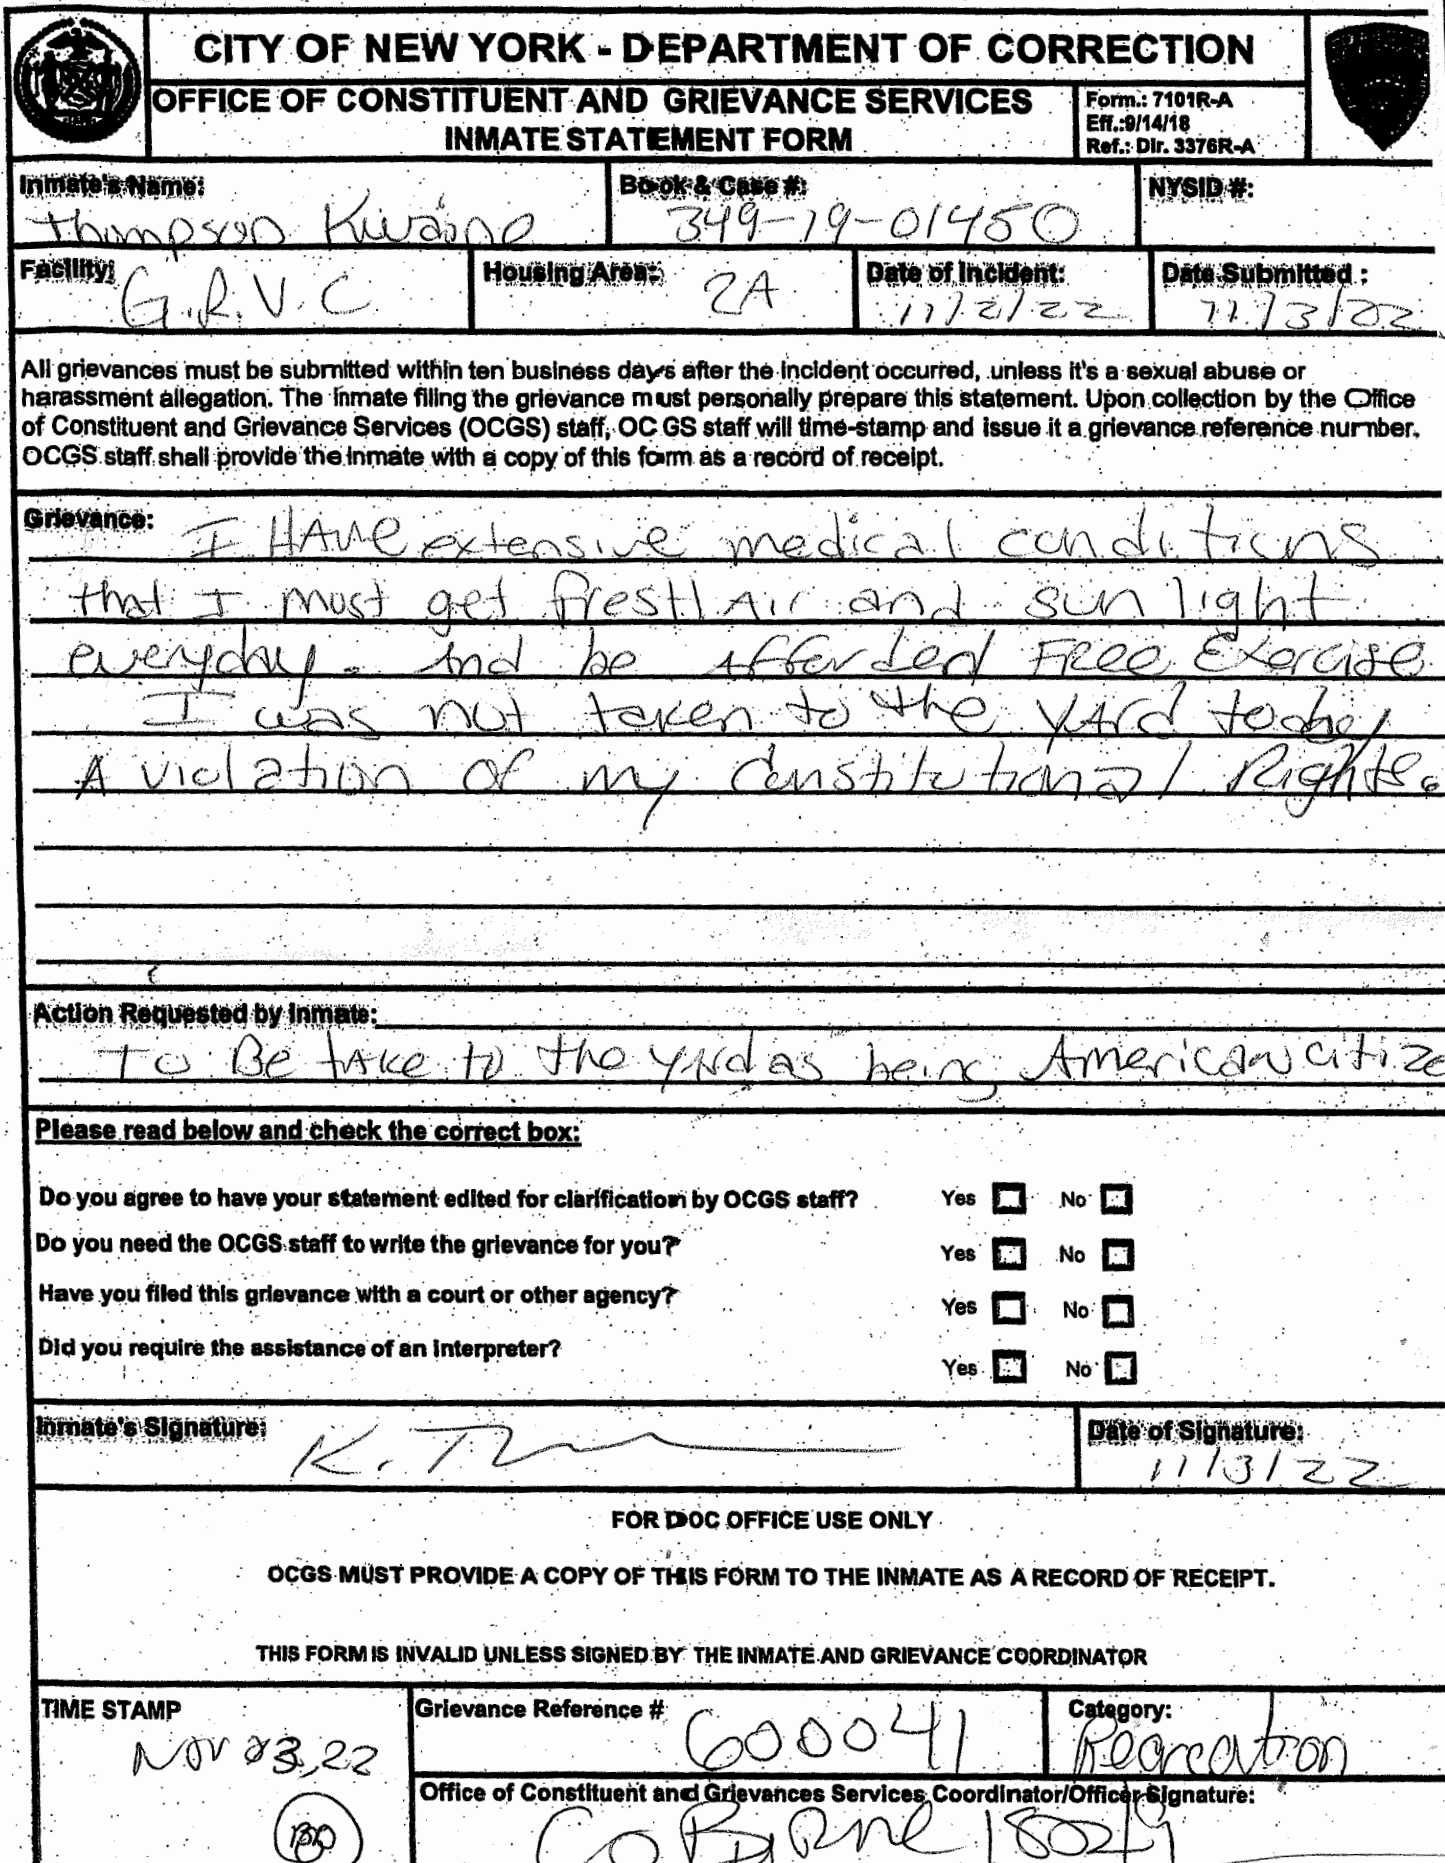 CITY OF NEW YORK - DEPARTMENT OF CORRECTION
OFFICE OF CONSTITUENT AND GRIEVANCE SERVICES
INMATE STATEMENT FORM
Form.: 7101R-A
Eff.:9/14/18
Ref.: Dir. 3376R-A
Inmate's Name:
Thompson
Book & Case #:
349-19-01450
NYSID #:
Facility:
G.R.V.C
Housing Area:
2A
Date of Incident:
11/2/22
Date Submitted :
11/3/22
All grievances must be submitted within ten business days after the incident occurred, unless it's a sexual abuse or
harassment allegation. The inmate filing the grievance must personally prepare this statement. Upon collection by the Office
of Constituent and Grievance Services (OCGS) staff, OCGS staff will time-stamp and issue it a grievance reference number.
OCGS staff shall provide the inmate with a copy of this form as a record of receipt.
Grievance:
I HAVE extensive medical conditions
that I must get fresH Air and sun light
everyday. And be Afforded FREE Exercise
I was not taken to the YARd today
A violation of my Constitutional Rights.
Action Requested by Inmate:
TO Be tAke to the YARd as being American citize
Please read below and check the correct box:
Do you agree to have your statement edited for clarification by OCGS staff? Yes No
Do you need the OCGS staff to write the grievance for you? Yes No
Have you filed this grievance with a court or other agency? Yes No
Did you require the assistance of an interpreter? Yes No
Inmate's Signature:
K. Th
Date of Signature:
11/3/22
FOR DOC OFFICE USE ONLY
OCGS MUST PROVIDE A COPY OF THIS FORM TO THE INMATE AS A RECORD OF RECEIPT.
THIS FORM IS INVALID UNLESS SIGNED BY THE INMATE AND GRIEVANCE COORDINATOR
TIME STAMP
Nov 03,22
Grievance Reference #
600041
Category:
Recreation
Office of Constituent and Grievances Services Coordinator/Officer Signature:
Co